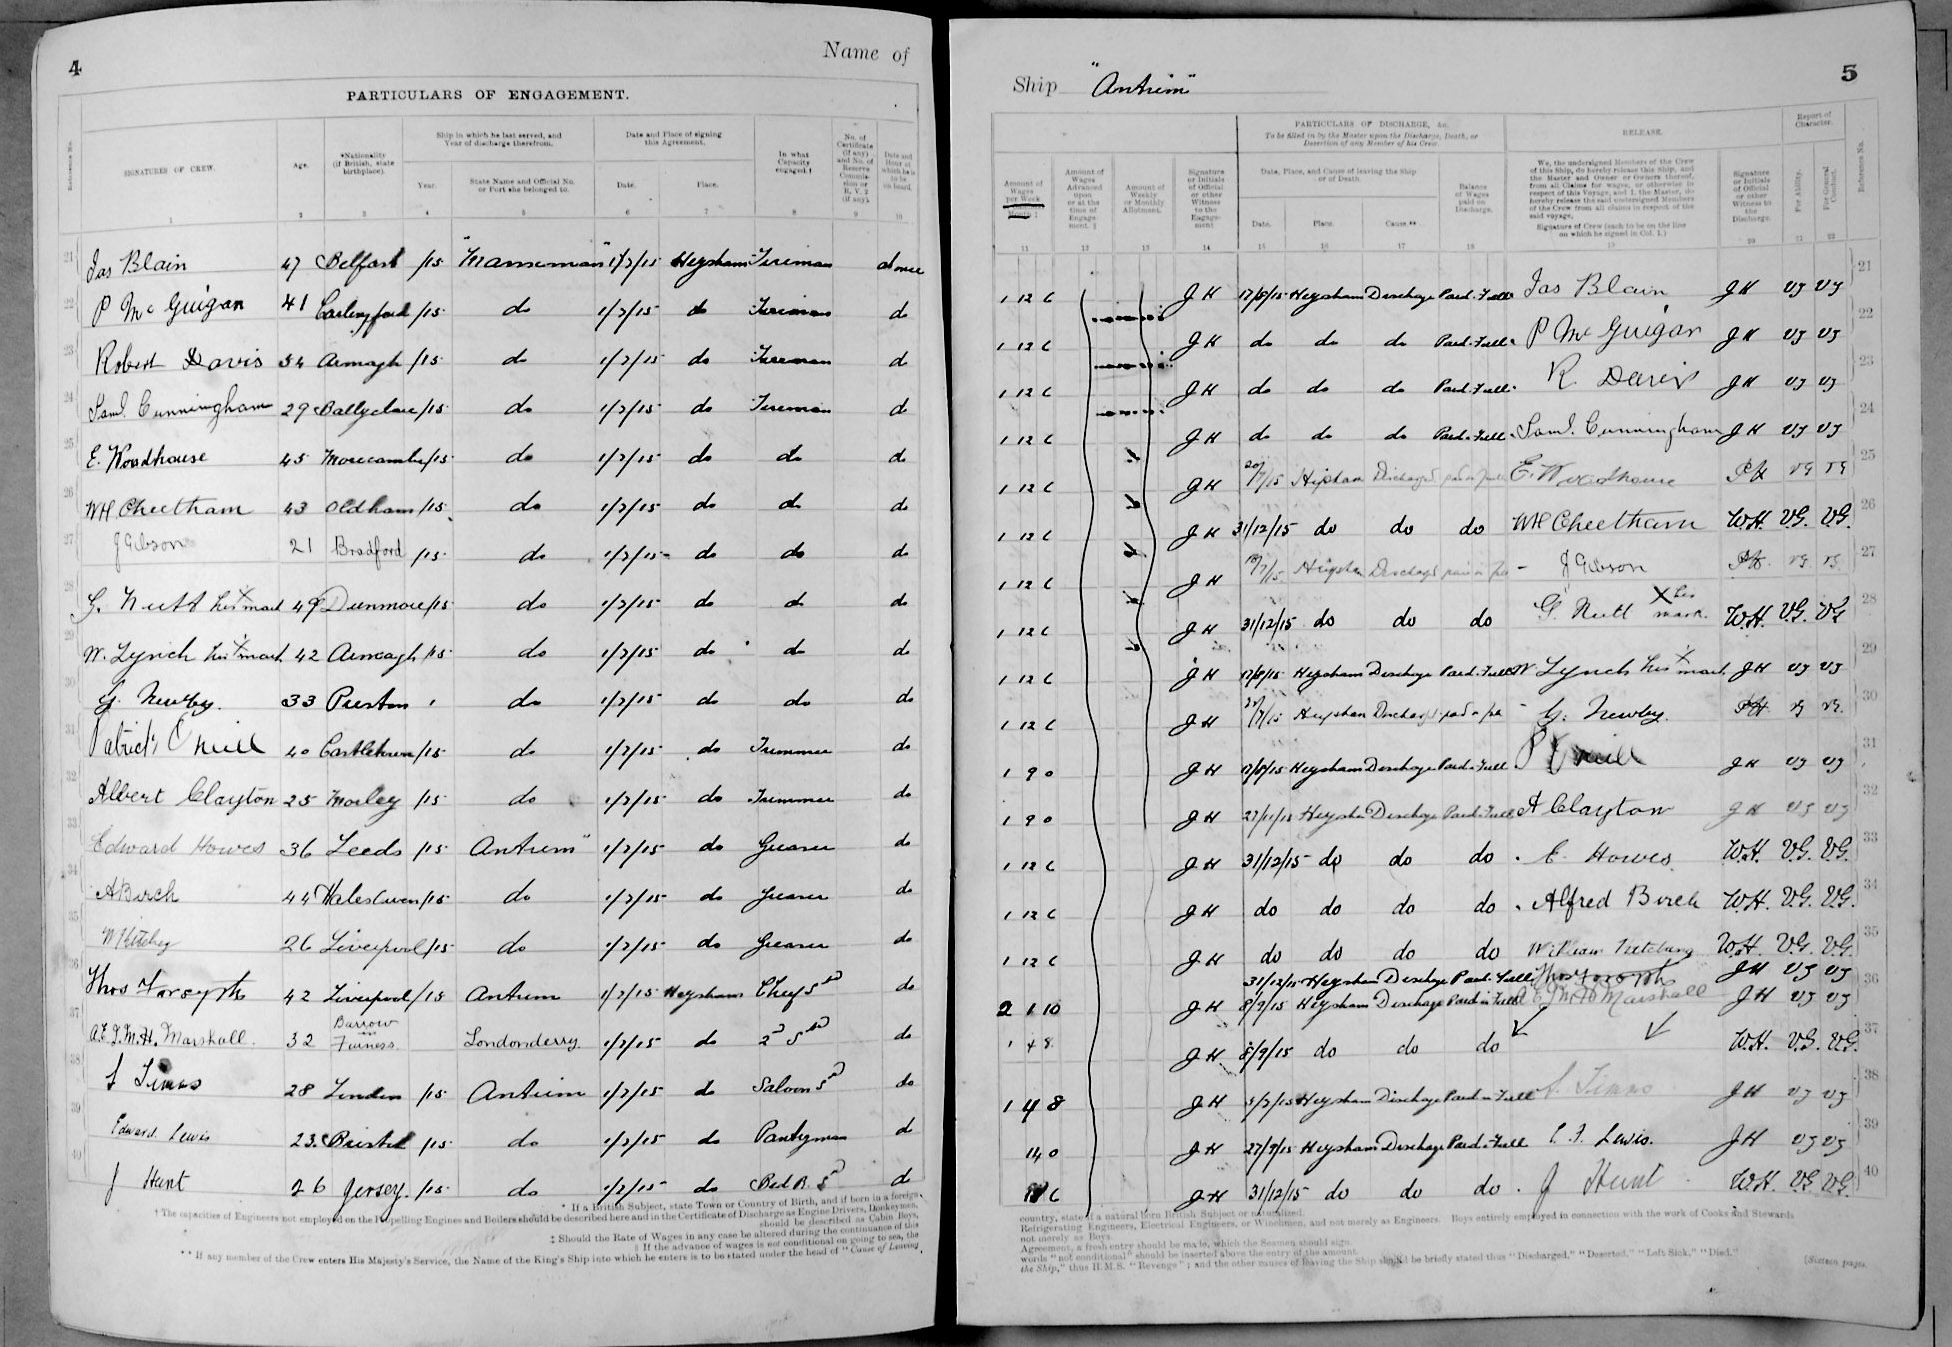 4
Name of
PARTICULARS OF ENGAGEMENT.
Reference No.
SIGNATURES OF CREW.
Age.
*Nationality (if British, state birthplace).
Ship in which he last served, and Year of discharge therefrom.
Year.
State Name and Official No. or Port she belonged to.
Date and Place of signing this Agreement.
Date.
Place.
In what Capacity engaged.†
No. of Certificate (if any) and No. of Reserve Commission or R.V.2 (if any).
Date and Hour at which he is to be on board.
1 2 3 4 5 6 7 8 9 10
21 Jas Blain 47 Belfast /15 "Manxman" 1/7/15 Heysham Fireman at once
22 P McGuigan 41 Carlingford /15 do 1/7/15 do Fireman do
23 Robert Davis 34 Armagh /15 do 1/7/15 do Fireman do
24 Saml. Cunningham 29 Ballyclare /15 do 1/7/15 do Fireman do
25 E. Woodhouse 45 Morecambe /15 do 1/7/15 do do do
26 WH Cheetham 43 Oldham /15 do 1/7/15 do do do
27 J Gibson 21 Bradford /15 do 1/7/15 do do do
28 G. Nutt his X mark 49 Dunmore /15 do 1/7/15 do do do
29 W. Lynch his X mark 42 Armagh /15 do 1/7/15 do do do
30 G. Newby. 33 Preston do 1/7/15 do do do
31 Patrick O'neill 40 Castletown /15 do 1/7/15 do Trimmer do
32 Albert Clayton 25 Morley /15 do 1/7/15 do Trimmer do
33 Edward Howes 36 Leeds /15 Antrim" 1/7/15 do Greaser do
34 A Birch 44 Halesowen /15 do 1/7/15 do Greaser do
35 26 Liverpool /15 do 1/7/15 do Greaser do
36 Thos Forsyth 42 Liverpool /15 Antrim 1/7/15 Heysham Chief Sd do
37 A.E.J.M.H. Marshall. 32 Barrow in Furness Londonderry 1/7/15 do 2d Sd do
38 28 London /15 Antrim 1/7/15 do Saloon Sd do
39 Edward Lewis 23 Bristol /15 do 1/7/15 do Pantryman do
40 J Hunt 26 Jersey. /15 do 1/7/15 do Bed R. Sd do
* If a British Subject, state Town or Country of Birth, and if born in a foreign
† The capacities of Engineers not employed on the Propelling Engines and Boilers should be described here and in the Certificate of Discharge as Engine Drivers, Donkeymen,
should be described as Cabin Boys,
‡ Should the Rate of Wages in any case be altered during the continuance of this
§ If the advance of wages is not conditional on going to sea, the
** If any member of the Crew enters His Majesty's Service, the Name of the King's Ship into which he enters is to be stated under the head of "Cause of Leaving
Ship "Antrim"
5
PARTICULARS OF DISCHARGE, &c.
To be filled in by the Master upon the Discharge, Death, or Desertion of any Member of his Crew.
RELEASE.
Report of Character.
Reference No.
Amount of Wages per Week Month ‡
Amount of Wages Advanced upon or at the time of Engagement. §
Amount of Weekly or Monthly Allotment.
Signature or Initials of Official or other Witness to the Engagement
Date, Place, and Cause of leaving the Ship or of Death.
Date.
Place.
Cause.**
Balance of Wages paid on Discharge.
We, the undersigned Members of the Crew of this Ship, do hereby release this Ship, and the Master and Owner or Owners thereof, from all Claims for wages, or otherwise in respect of this Voyage, and I, the Master, do hereby release the said undersigned Members of the Crew from all claims in respect of the said voyage.
Signature of Crew (each to be on the line on which he signed in Col. 1.)
Signature or Initials of Official or other Witness to the Discharge.
For Ability.
For General Conduct.
11 12 13 14 15 16 17 18 19 20 21 22
1 12 6 JH 17/8/15 Heysham Discharge Paid Full Jas Blain JH VG VG 21
1 12 6 JH do do do Paid Full P McGuigan JH VG VG 22
1 12 6 JH do do do Paid Full R. Davis JH VG VG 23
1 12 6 JH do do do Paid Full Saml. Cunningham JH VG VG 24
1 12 6 JH 20/7/15 Heysham Discharged E. Woodhouse VG VG 25
1 12 6 JH 31/12/15 do do do WH Cheetham W.H. V.G. V.G. 26
1 12 6 JH Heysham Discharged J Gibson VG VG 27
1 12 6 JH 31/12/15 do do do G. Nutt X his mark. W.H. V.G. VG 28
1 12 6 JH 17/8/15 Heysham Discharge Paid Full W Lynch his X mark JH VG VG 29
1 12 6 JH Heysham Discharged G. Newby. 30
1 9 0 JH 17/8/15 Heysham Discharge Paid Full P O'neill JH VG VG 31
1 9 0 JH 27/11/15 Heysham Discharge Paid Full A Clayton JH VG VG 32
1 12 6 JH 31/12/15 do do do E. Howes. W.H. V.G. V.G. 33
1 12 6 JH do do do do Alfred Birch W.H. V.G. V.G. 34
1 12 6 JH do do do do William W.H V.G. V.G. 35
31/12/15 Heysham Discharge Paid Full Thos Forsyth JH VG VG
2 1 10 JH 8/9/15 Heysham Discharge Paid in Full A E J M H Marshall JH VG VG 36
1 4 8 JH 8/9/15 do do do W.H. V.G. V.G. 37
1 4 8 JH Heysham Discharge Paid in Full JH VG VG 38
1 4 0 JH 27/9/15 Heysham Discharge Paid Full E. J. Lewis. JH VG VG 39
JH 31/12/15 do do do J Hunt W.H. V.G. V.G. 40
country, state if a natural born British Subject or naturalized.
Refrigerating Engineers, Electrical Engineers, or Winchmen, and not merely as Engineers. Boys entirely employed in connection with the work of Cooks and Stewards
not merely as Boys.
Agreement, a fresh entry should be made, which the Seamen should sign.
words "not conditional" should be inserted above the entry of the amount.
the Ship," thus H.M.S. "Revenge"; and the other causes of leaving the Ship should be briefly stated thus "Discharged," "Deserted," "Left Sick," "Died."
(Sixteen pages.